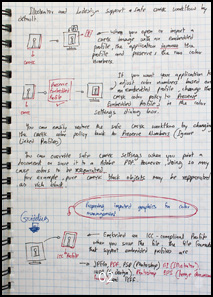 Illustrator and InDesign support a safe CMYK workflow by
default.
when you open or import a
CMYK image with an embedded
profile, the application ignores the
profile and preserves the raw color
numbers.
CMYK
If you want your application to
adjust color numbers based on
an embedded profile, change the
CMYK color policy to Preserve
Embedded Profiles in the color
settings dialog box.
Preserve
embedded
profile
CMYK
You can easily restore the safe CMYK workflow by changing
the CMYK color policy back to Preserve Numbers (Ignore
Linked Profiles)
You can override safe CMYK settings when you print a
document or save it to Adobe PDF. However, doing so may
cause colors to be reseparated.
For example, pure CMYK black objects may be reseparated
as rich black.
Preparing imported graphics for color
management
Embed an ICC-compliant profile
when you save the file. The file formats
that support embedded profiles are
JPEG, PDF, PSD (Photoshop)
and TIFF.